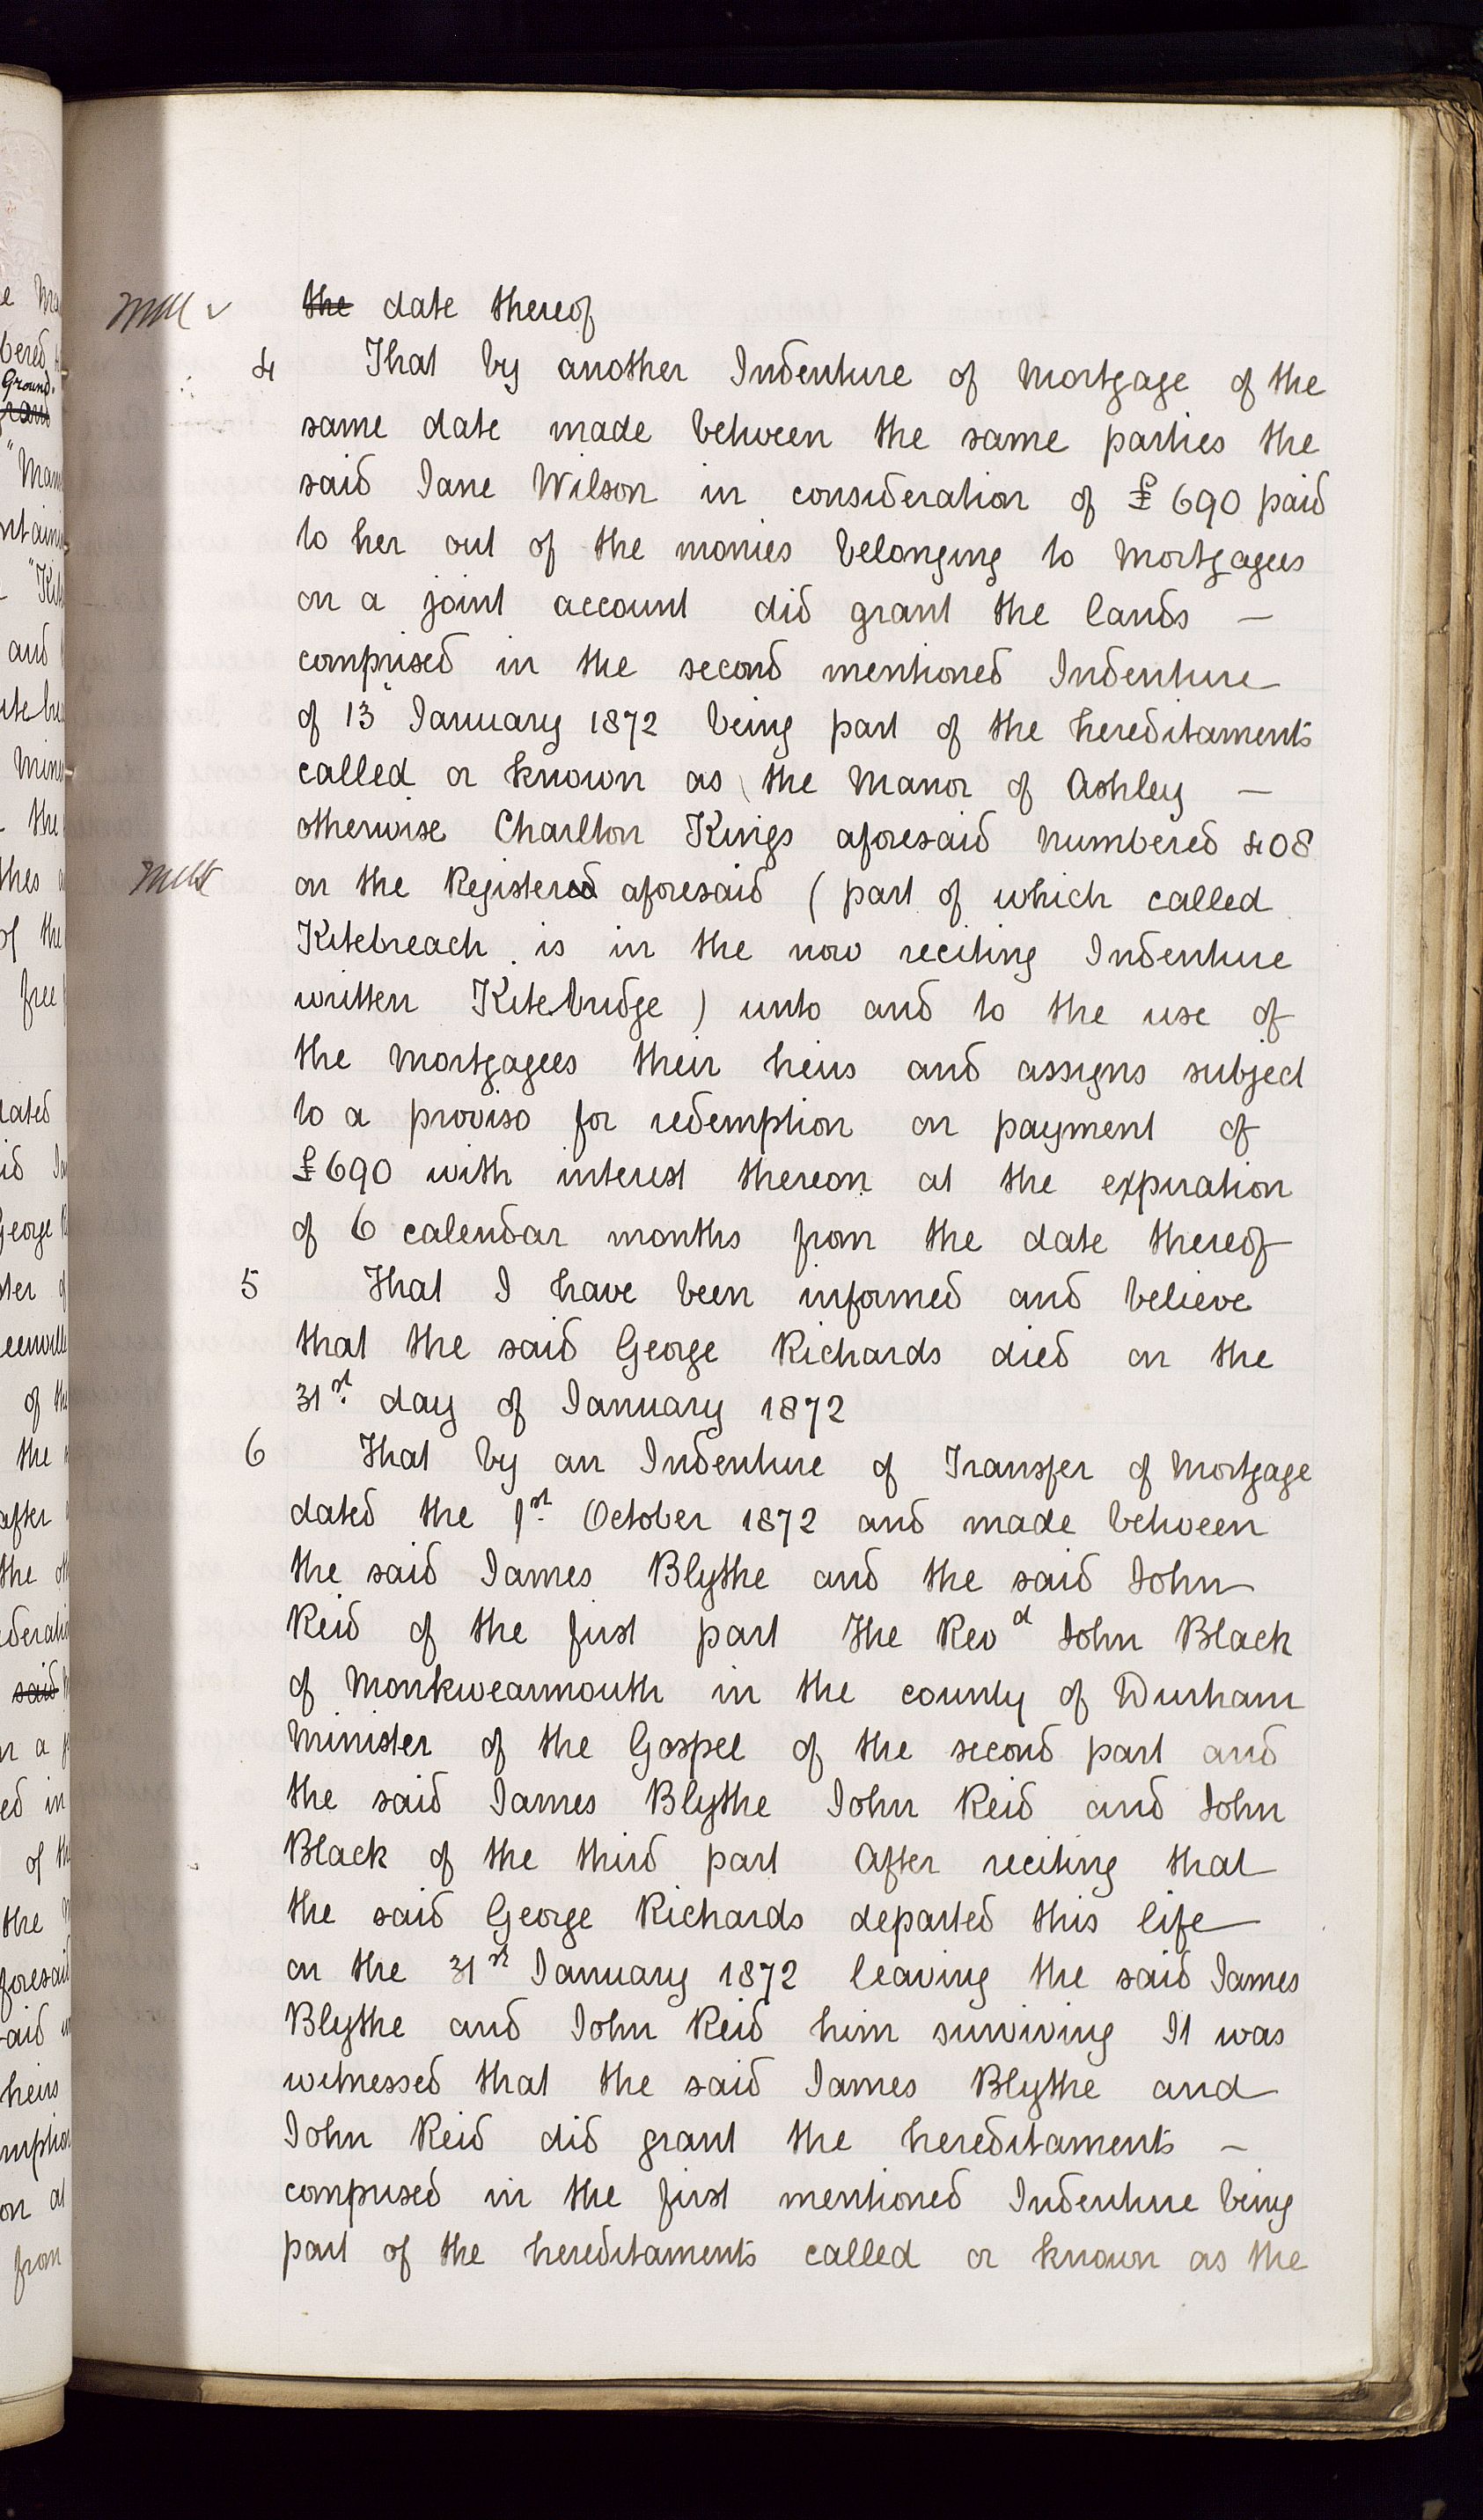 the date thereof
4 That by another Indenture of Mortgage of the
same date made between the same parties the
said Jane Wilson in consideration of £690 paid
to her out of the monies belonging to Mortgagees
on a joint account did grant the lands —
comprised in the second mentioned Indenture
of 13 January 1872 being part of the hereditaments
called or known as the Manor of Ashley —
otherwise Charlton Kings aforesaid numbered 408
on the Registered aforesaid (part of which called
Kitebreach is in the now reciting Indenture
written Kitebridge) unto and to the use of
the Mortgagees their heirs and assigns subject
to a proviso for redemption on payment of
£690 with interest thereon at the expiration
of 6 calendar months from the date thereof
5 That I have been informed and believe
that the said George Richards died on the
31st day of January 1872
6 That by an Indenture of Transfer of Mortgage
dated the 1st October 1872 and made between
the said James Blythe and the said John
Reid of the first part the Revd John Black
of Monkwearmouth in the county of Durham
Minister of the Gospel of the second part and
the said James Blythe John Reid and John
Black of the third part After reciting that
the said George Richards departed this life
on the 31st January 1872 leaving the said James
Blythe and John Reid him surviving It was
witnessed that the said James Blythe and
John Reid did grant the hereditaments —
comprised in the first mentioned Indenture being
part of the hereditaments called or known as the